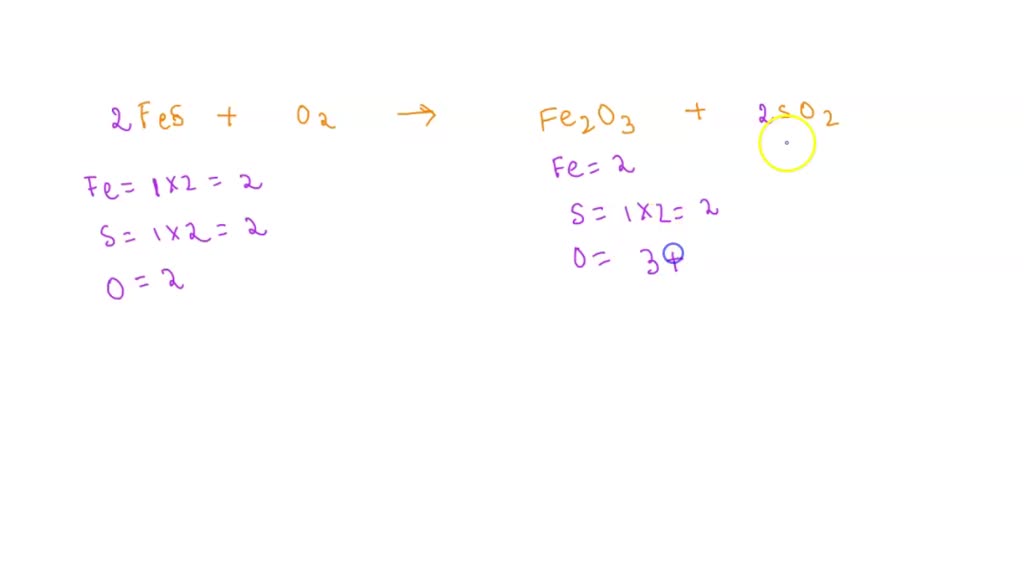 2FeS + O2 → Fe2O3 + 2SO2
Fe = 1×2 = 2
S = 1×2 = 2
O = 2
Fe = 2
S = 1×2 = 2
O = 3+